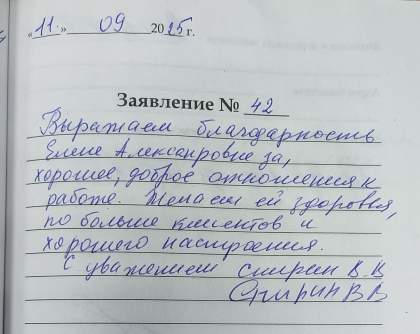 "11." 09 2025 г.
Заявление № 42
Выражаем благодарность
Елене Алексанровне за,
хорошее, доброе отношения к
работе. Желаем ей здоровья,
по больше клиентов и
хорошего настроения.
С уважением Спирин В.В
Спирин В В